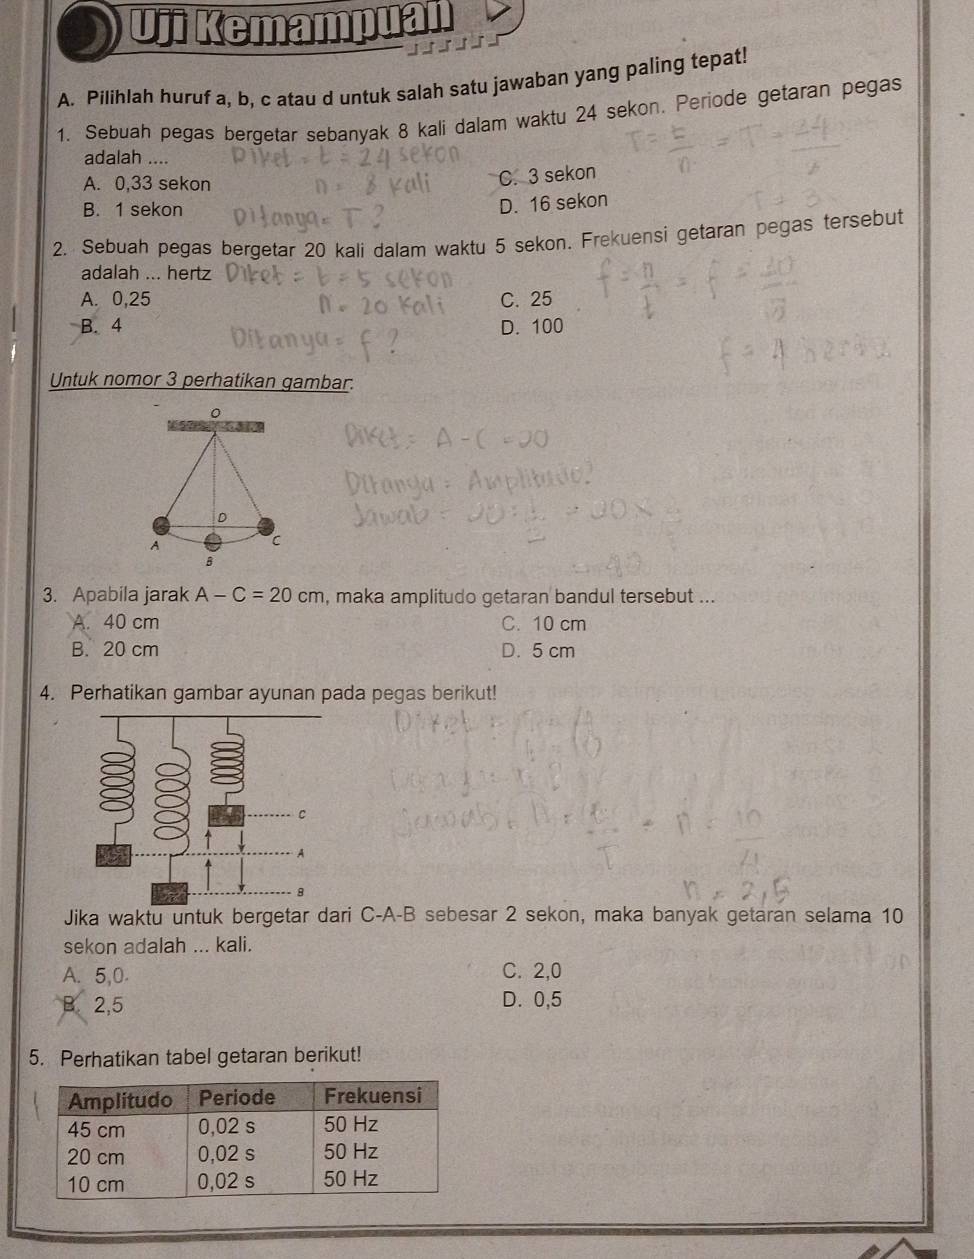 Uji Kemampuan
A. Pilihlah huruf a, b, c atau d untuk salah satu jawaban yang paling tepat!
1. Sebuah pegas bergetar sebanyak 8 kali dalam waktu 24 sekon. Periode getaran pegas
adalah ....
Diket = t = 24 sekon
T = t/n = T = 24/
A. 0,33 sekon
n = 8 kali
C. 3 sekon
B. 1 sekon
Ditanya = T ?
D. 16 sekon
T = 3
2. Sebuah pegas bergetar 20 kali dalam waktu 5 sekon. Frekuensi getaran pegas tersebut
adalah ... hertz
Diket = t = 5 sekon
f = n/t = f =
A. 0,25
n = 20 kali
C. 25
B. 4
Ditanya = f ?
D. 100
f = 4
Untuk nomor 3 perhatikan gambar.
O
Diket = A - C = 20
Ditanya = Amplitudo?
D
Jawab =
A
C
B
3. Apabila jarak A – C = 20 cm, maka amplitudo getaran bandul tersebut ...
A. 40 cm
C. 10 cm
B. 20 cm
D. 5 cm
4. Perhatikan gambar ayunan pada pegas berikut!
C
A
n = 2,5
B
Jika waktu untuk bergetar dari C-A-B sebesar 2 sekon, maka banyak getaran selama 10
sekon adalah ... kali.
A. 5,0
C. 2,0
B. 2,5
D. 0,5
5. Perhatikan tabel getaran berikut!
Amplitudo Periode Frekuensi
45 cm 0,02 s 50 Hz
20 cm 0,02 s 50 Hz
10 cm 0,02 s 50 Hz